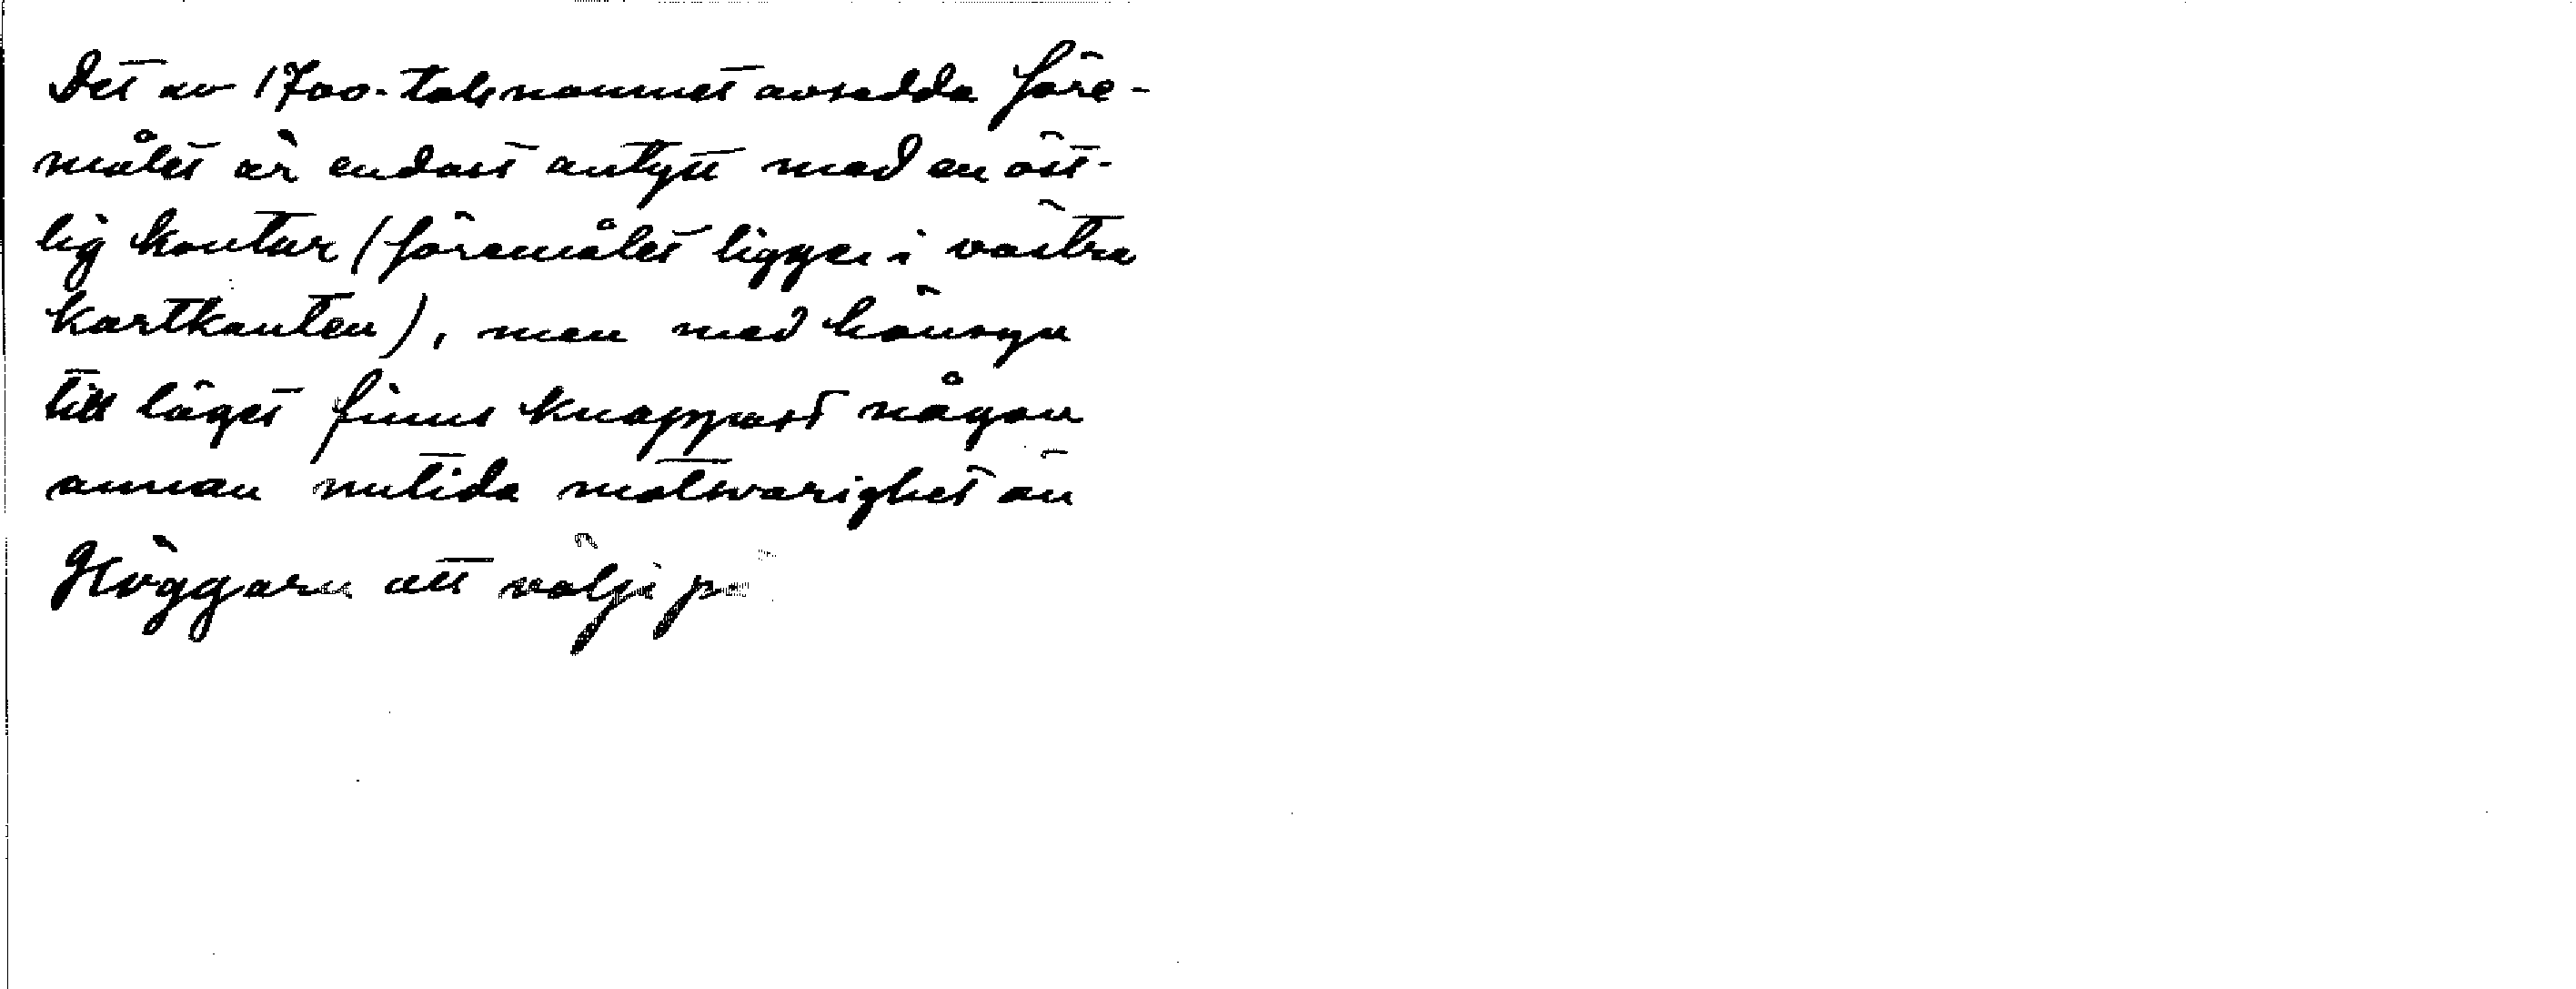 Det av 1700-talsnamnet avsedda före-
målet är endast antytt med en öst-
lig kontur (föremålet ligger i västra
kartkanten), men med hänsyn
till läget finns knappast någon
annan nutida motsvarighet än
Höggarn att välja på